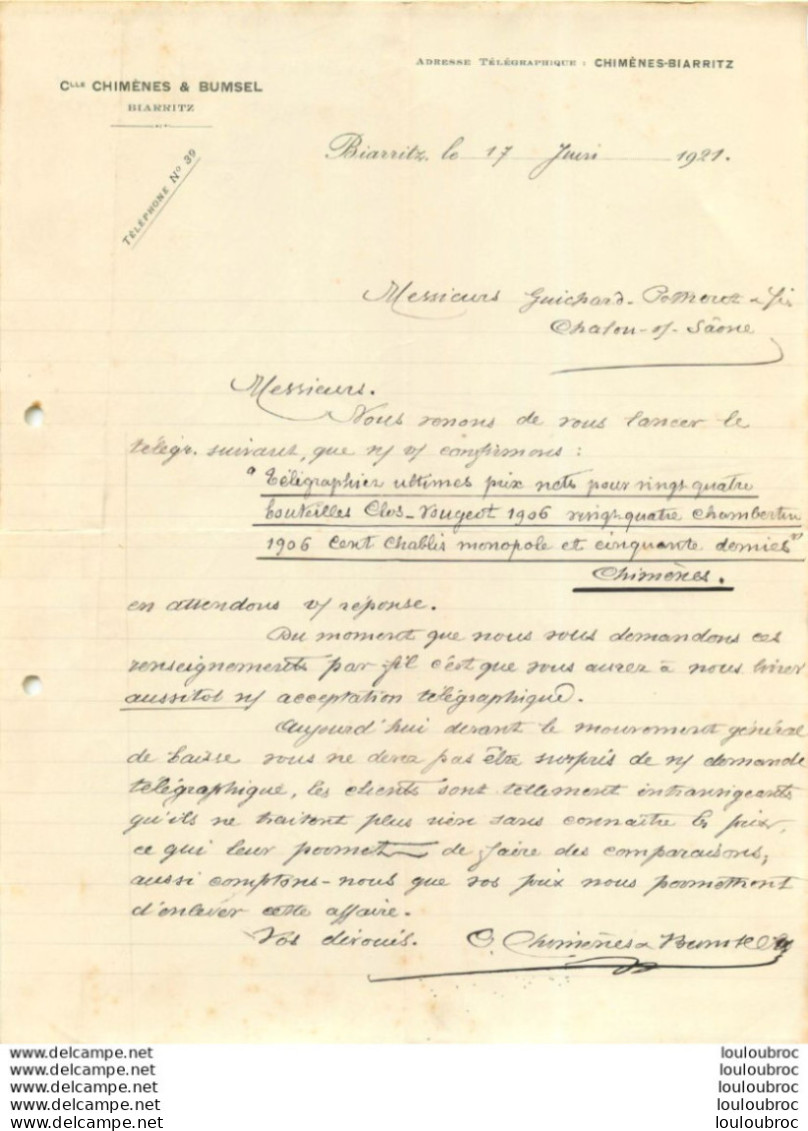 ADRESSE TÉLÉGRAPHIQUE : CHIMÈNES-BIARRITZ
Clle CHIMÈNES & BUMSEL
BIARRITZ
TÉLÉPHONE No 39
Biarritz, le 17 Juin 1921.
Messieurs Guichard-Potheret & fils
Chalon s/ Saône
Messieurs.
Nous venons de vous lancer le
télégr. suivant, que n/ v/ confirmons :
" Télégraphiez ultimes prix nets pour vingt quatre
bouteilles Clos-Vougeot 1906 vingt-quatre chambertin
1906 Cent Chablis monopole et cinquante demies "
Chimènes.
en attendons v/ réponse.
Du moment que nous vous demandons ces
renseignements par fil c'est que vous aurez à nous livrer
aussitot n/ acceptation télégraphique.
Aujourd'hui devant le mouvement général
de baisse vous ne devez pas être surpris de n/ demande
télégraphique, les clients sont tellement intransigeants
qu'ils ne traitent plus rien sans connaître les prix,
ce qui leur permet de faire des comparaisons,
aussi comptons-nous que vos prix nous permettront
d'enlever cette affaire.
Vos dévoués. C. Chimènes & Bumsel
www.delcampe.net louloubroc
www.delcampe.net louloubroc
www.delcampe.net louloubroc
www.delcampe.net louloubroc
www.delcampe.net louloubroc